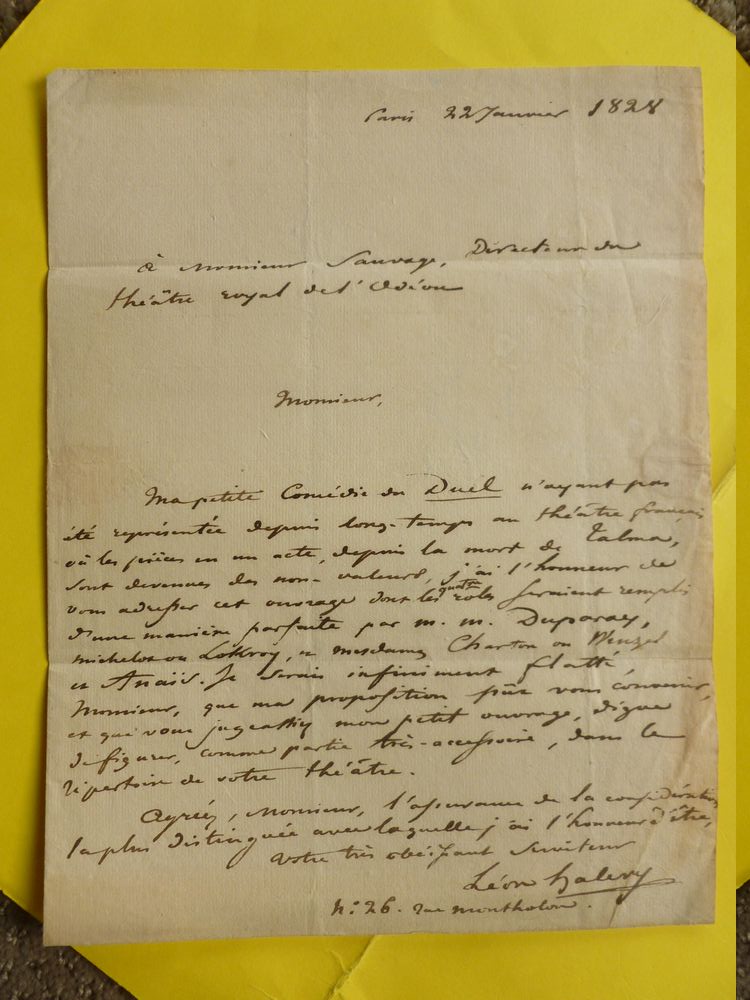 Paris 22 Janvier 1828
à Monsieur Sauvage, Directeur du
théâtre royal de l'Odéon
Monsieur,
Ma petite Comédie du Duel n'ayant pas
été représentée depuis long-temps au théâtre français
où les pièces en un acte, depuis la mort de Talma,
sont devenues des non-valeurs, j'ai l'honneur de
vous adresser cet ouvrage dont les quatre roles seraient remplis
d'une manière parfaite par m. m. Duparay,
michelot ou Lokroy, et mesdames Charton ou Wenzel
et Anaïs. Je serais infiniment flatté,
Monsieur, que ma proposition pût vous convenir,
et que vous jugeassiez mon petit ouvrage, digne
de figurer, comme partie très-accessoire, dans le
répertoire de votre théâtre.
Agréez, Monsieur, l'assurance de la considération
la plus distinguée avec laquelle j'ai l'honneur d'être,
votre très obéissant Serviteur
Léon halevy
N.° 26. rue montholon.